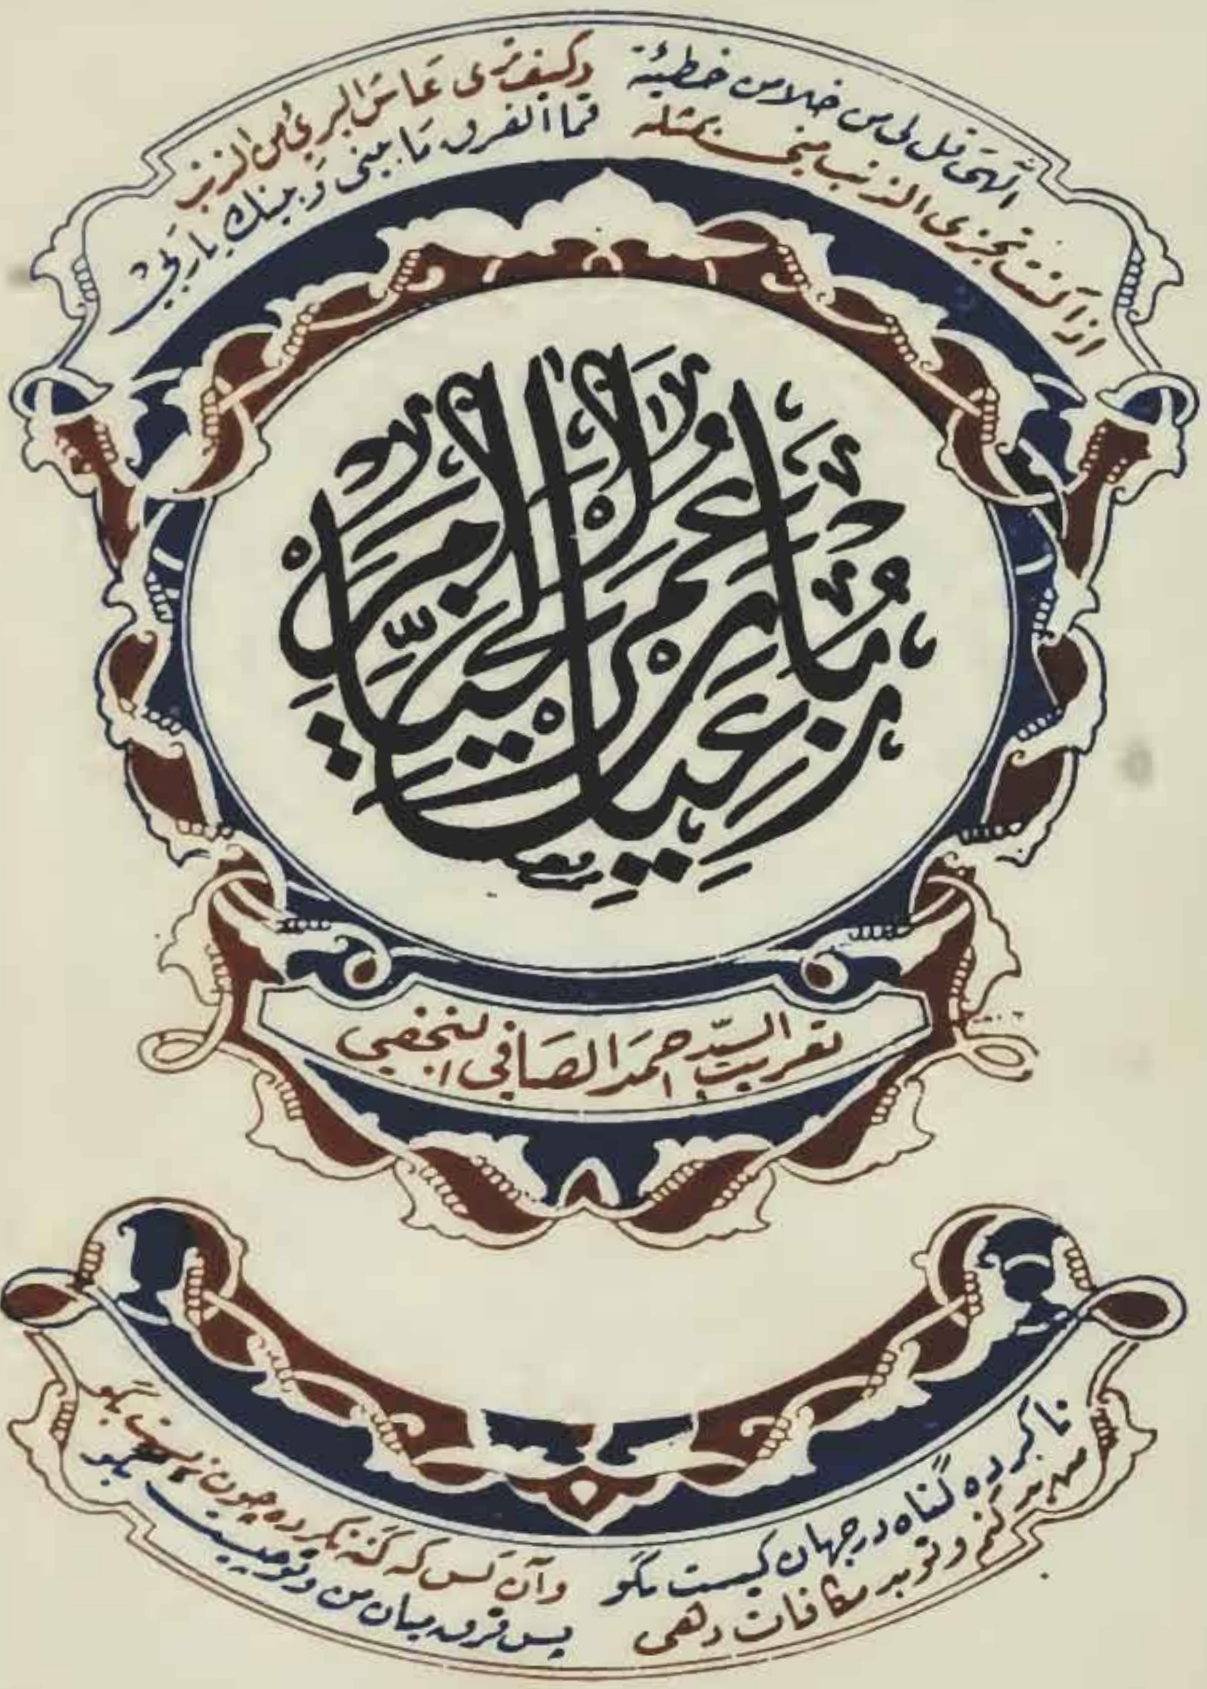 الٰهي قل لي من خلا من خطيئة وكيف ترى عاش البريء من الذنب
اذا كنت تجزي الذنب مني بمثله فما الفرق ما بيني وبينك يا ربي
رباعيات عمر الخيام
تعريب السيد احمد الصافي النجفي
ناكرده گناه در جهان كيست بگو وآن كس كه گنه نكرده چون زيست بگو
من بد كنم و تو بد مكافات دهى پس فرق ميان من و تو چيست بگو